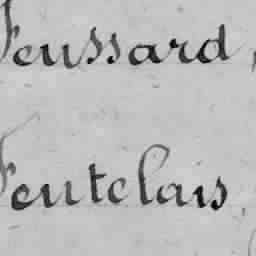 Feussard,
Feutelais